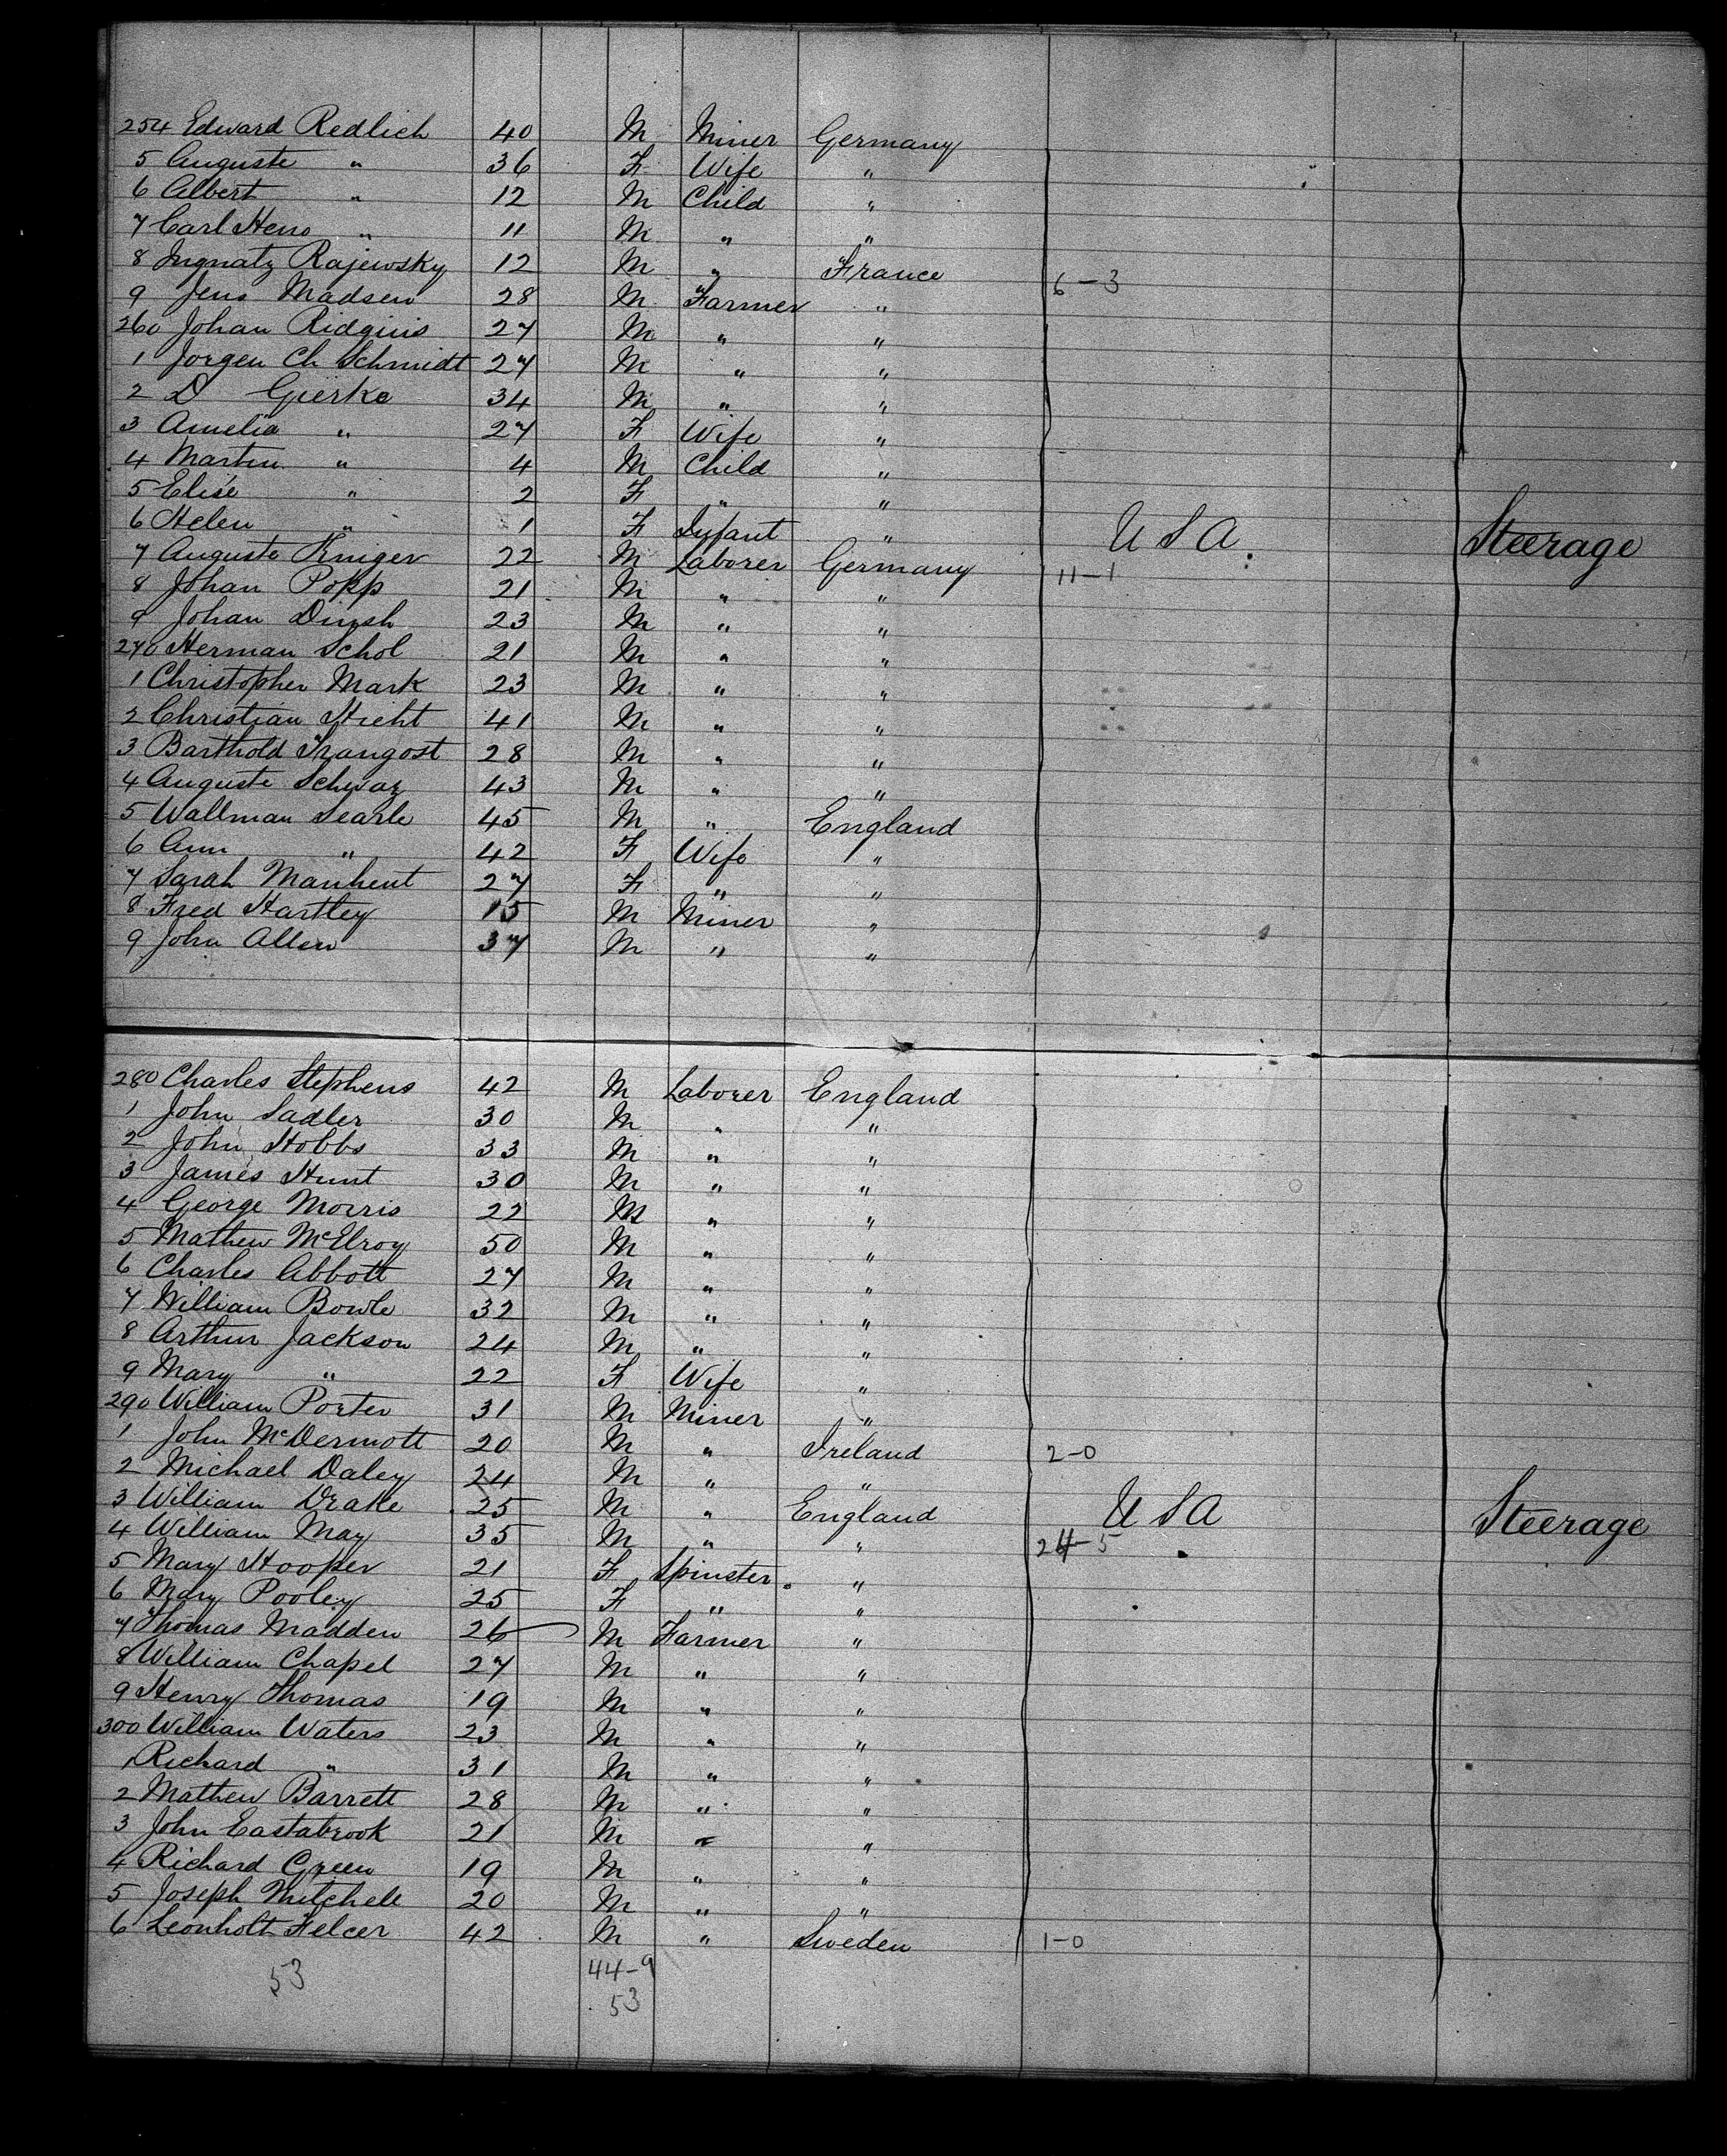 254 Edward Redlich 40 M Miner Germany
5 Auguste " 36 F Wife "
6 Albert " 12 M Child "
7 Carl Hens " 11 M " "
8 Ingnatz Rajewsky 12 M " France 6-3
9 Jens Madsen 28 M Farmer "
260 Johan Ridquis 27 M " "
1 Jorgen Ch Schmidt 27 M " "
2 D Gierke 34 M " "
3 Amelia " 27 F Wife "
4 Martin " 4 M Child "
5 Elise " 2 F " "
6 Helen " 1 F Infant " U S A. Steerage
7 Auguste Kruger 22 M Laborer Germany 11-1
8 Johan Popp 21 M " "
9 Johan 23 M " "
270 Herman Schol 21 M " "
1 Christopher Mark 23 M " "
2 Christian Hicht 41 M " "
3 Barthold Trangost 28 M " "
4 Auguste Schwaz 43 M " "
5 Wallman Searle 45 M " England
6 Ann " 42 F Wife "
7 Sarah Manhent 27 F " "
8 Fred Hartley 15 M Miner "
9 John Allen 37 M " "
280 Charles Stephens 42 M Laborer England
1 John Sadler 30 M " "
2 John Hobbs 33 M " "
3 James Hunt 30 M " "
4 George Morris 22 M " "
5 Mathew McElroy 50 M " "
6 Charles Abbott 27 M " "
7 William Bowle 32 M " "
8 Arthur Jackson 24 M " "
9 Mary " 22 F Wife "
290 William Porter 31 M Miner "
1 John McDermott 20 M " Ireland 2-0
2 Michael Daley 24 M " "
3 William Drake 25 M " England U S A Steerage
4 William May 35 M " " 24-5
5 Mary Hooper 21 F Spinster "
6 Mary Pooley 25 F " "
7 Thomas Madden 26 M Farmer "
8 William Chapel 27 M " "
9 Henry Thomas 19 M " "
300 William Waters 23 M " "
1 Richard " 31 M " "
2 Mathew Barrett 28 M " "
3 John Eastabrook 21 M " "
4 Richard Green 19 M " "
5 Joseph Mitchell 20 M " "
6 Leonholt Felcer 42 M " Sweden 1-0
53 44-9
53